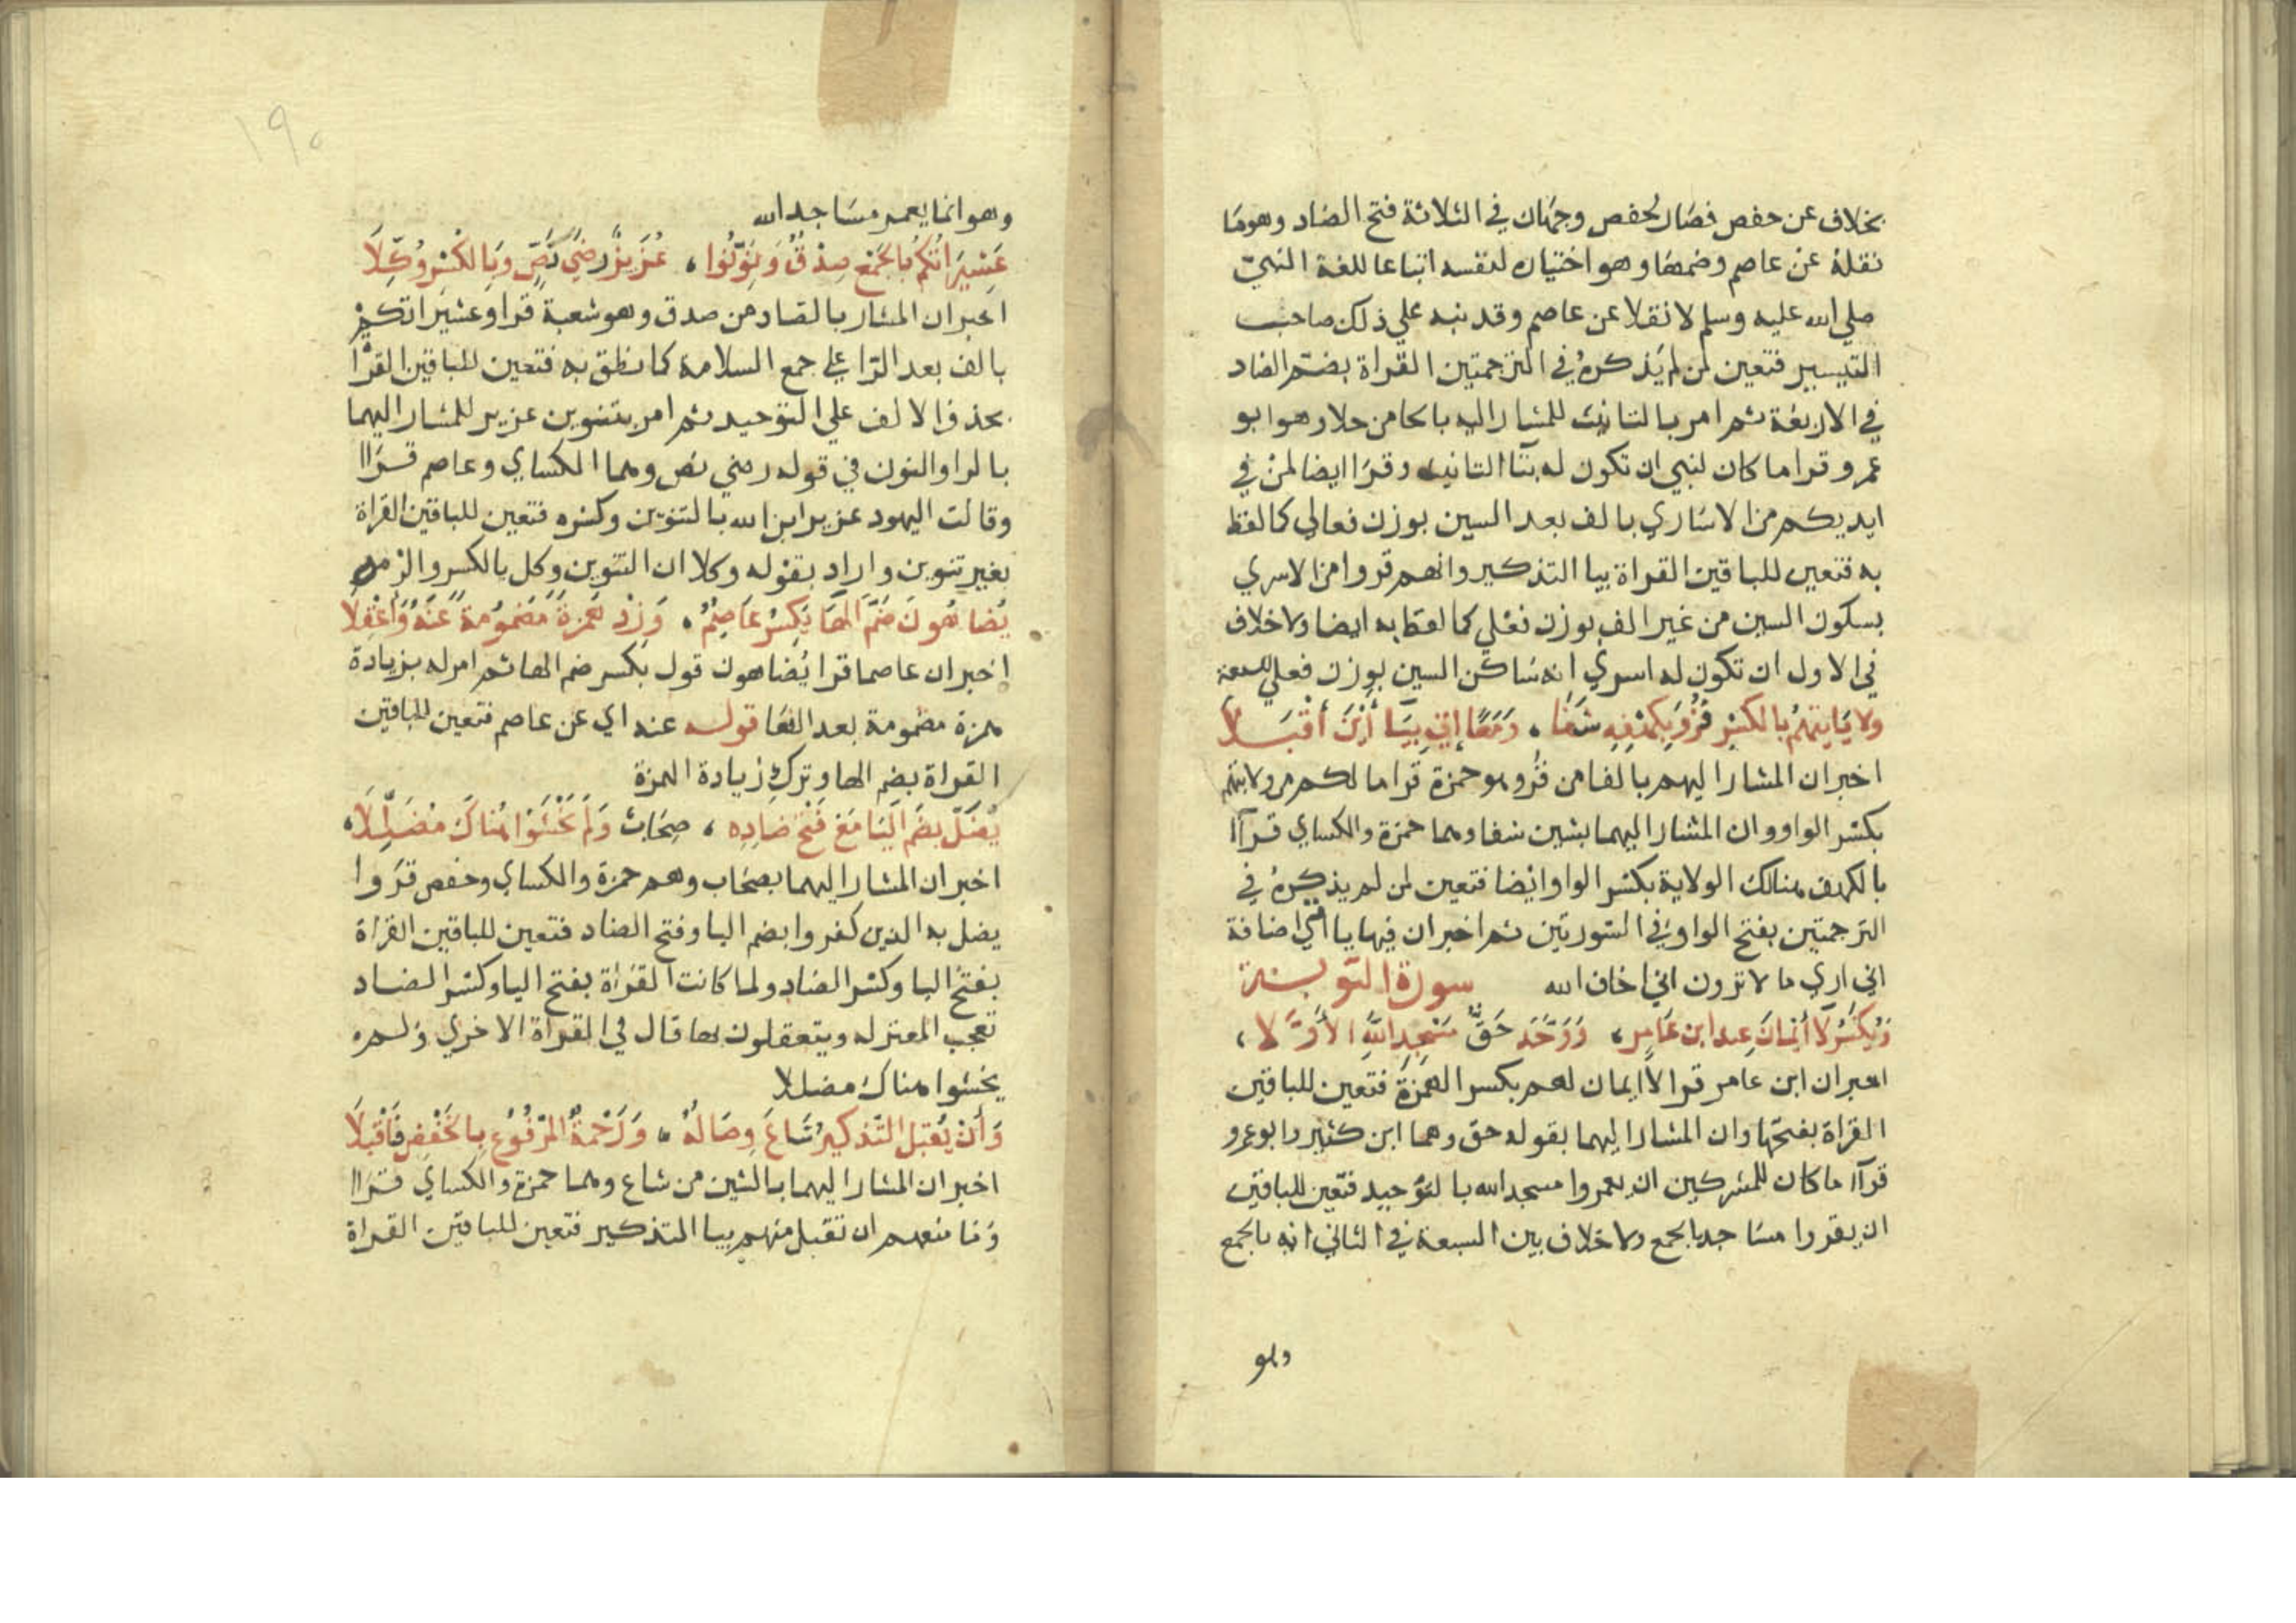 بخلاف عن حفص فصار لحفص وجهان في الثلاثة فتح الضاد وهو ما
نقله عن عاصم وضمها وهو اختياره لنفسه اتباعا للغة النبي
صلي الله عليه وسلم لا نقلا عن عاصم وقد نبه علي ذلك صاحب
التيسير فتعين لمن لم يذكره في الترجمتين القراة بضم الضاد
في الاربعة ثم امر بالتانيث للمشار اليه بالحا من حلا وهو ابو
عمرو قرا ما كان لنبي ان تكون له بتا التانيث وقرا ايضا لمن في
ايديكم من الاساري بالف بعد السين بوزن فعالي كالفظ
به فتعين للباقين القراة بيا التذكير وانهم قروا من الاسري
بسكون السين من غير الف بوزن فعلي كما لفظ به ايضا ولا خلاف
في الاول ان تكون له اسري انه ساكن السين بوزن فعلي للسبعة
ولايايتهم بالكسر فز وبكهفه شفا، ومعا اني بيا أين أقبلا
اخبر ان المشار اليهم بالفا من فز وهو حمزة قرا ما لكم من ولايتهم
بكسر الواو وان المشار اليهما بشين شفا وهما حمزة والكساي قراا
بالكهف هنالك الولاية بكسر الواو ايضا فتعين لمن لم يذكره في
الترجمتين بفتح الواو في السورتين ثم اخبر ان فيها يا اي اضافة
اني اري ما لا ترون اني اخاف الله سورة التوبة
ويكسر لا أيمان عند ابن عامر، ووحد حق مسجد الله الأولا،
اخبر ان ابن عامر قرا لا ايمان لهم بكسر الهمزة فتعين للباقين
القراة بفتحها وان المشار اليهما بقوله حق وهما ابن كثير وابو عمرو
قراا ما كان للمشركين ان يعمروا مسجد الله بالتوحيد فتعين للباقين
ان يقروا مساجد بالجمع ولا خلاف بين السبعة في الثاني انه بالجمع
وهو
١٩٠
وهو انما يعمر مساجد الله
عشيراتكم بالجمع صدق ونونوا، عزيز رضي نص وبالكسر وكلا
اخبر ان المشار بالصاد من صدق وهو شعبة قرا وعشيراتكم
بالف بعد الرا علي جمع السلامة كما نطق به فتعين للباقين القراة
بحذف الالف علي التوحيد ثم امر بتنوين عزير للمشار اليهما
بالرا والنون في قوله رضي نص وهما الكساي وعاصم قراا
وقالت اليهود عزير ابن الله بالتنوين وكسره فتعين للباقين القراة
بغير تنوين واراد بقوله وكلا ان التنوين وكل بالكسر والزمه
يضاهون ضم الها يكسر عاصم، وزد همزة مضمومة عنه واعقلا
اخبر ان عاصما قرا يضاهون قول بكسر ضم الها ثم امر له بزيادة
همزة مضمومة بعد الها قوله عنه اي عن عاصم فتعين للباقين
القراة بضم الها وترك زيادة الهمزة
يضل بضم اليا مع فتح ضاده، صحاب ولم يخشوا هناك مضللا،
اخبر ان المشار اليهما بصحاب وهم حمزة والكساي وحفص قروا
يضل به الذين كفروا بضم اليا وفتح الضاد فتعين للباقين القراة
بفتح اليا وكسر الضاد ولما كانت القراة بفتح اليا وكسر الضاد
تعجب المعتزلة ويتعقلون بها قال في القراة الاخري ولم
يخشوا هناك مضللا
وأن يقبل التذكير شاع وصاله، ورحمة المرفوع بالخفض فاقبلا
اخبر ان المشار اليهما بالشين من شاع وهما حمزة والكساي قراا
وما منعهم ان تقبل منهم بيا التذكير فتعين للباقين القراة